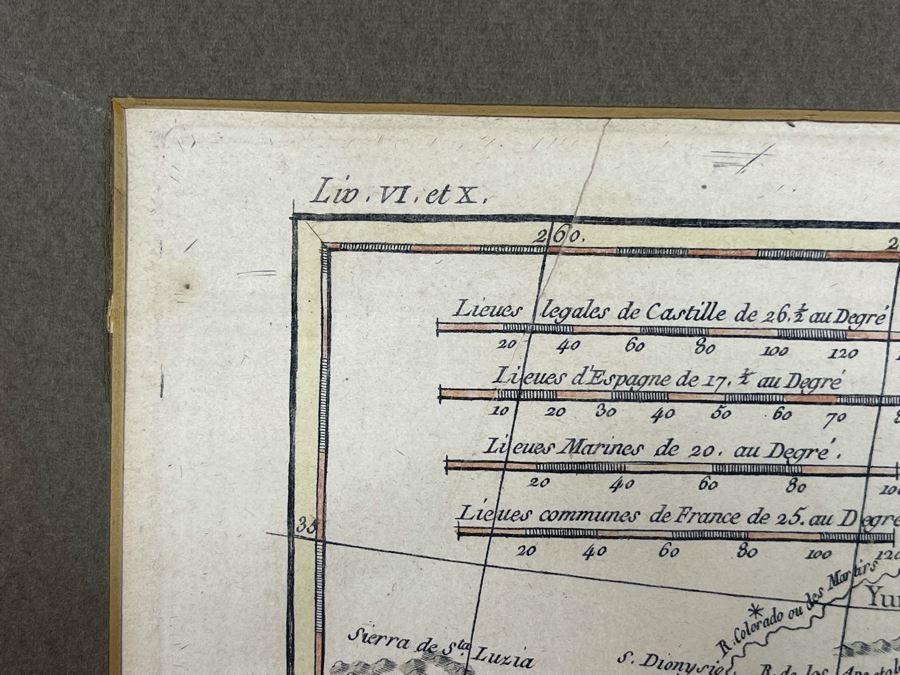 Liv. VI. et X.
260.
2
Lieues legales de Castille de 26.½ au Degré
20 40 60 80 100 120
Lieues d'Espagne de 17.½ au Degré
10 20 30 40 50 60 70 8
Lieues Marines de 20. au Degré.
20 40 60 80 100
Lieues communes de France de 25. au Degré
35
20 40 60 80 100 120
R. Colorado ou des Martirs
Yu
Sierra de Sta. Luzia
S. Dionysio
R. de los Apostol